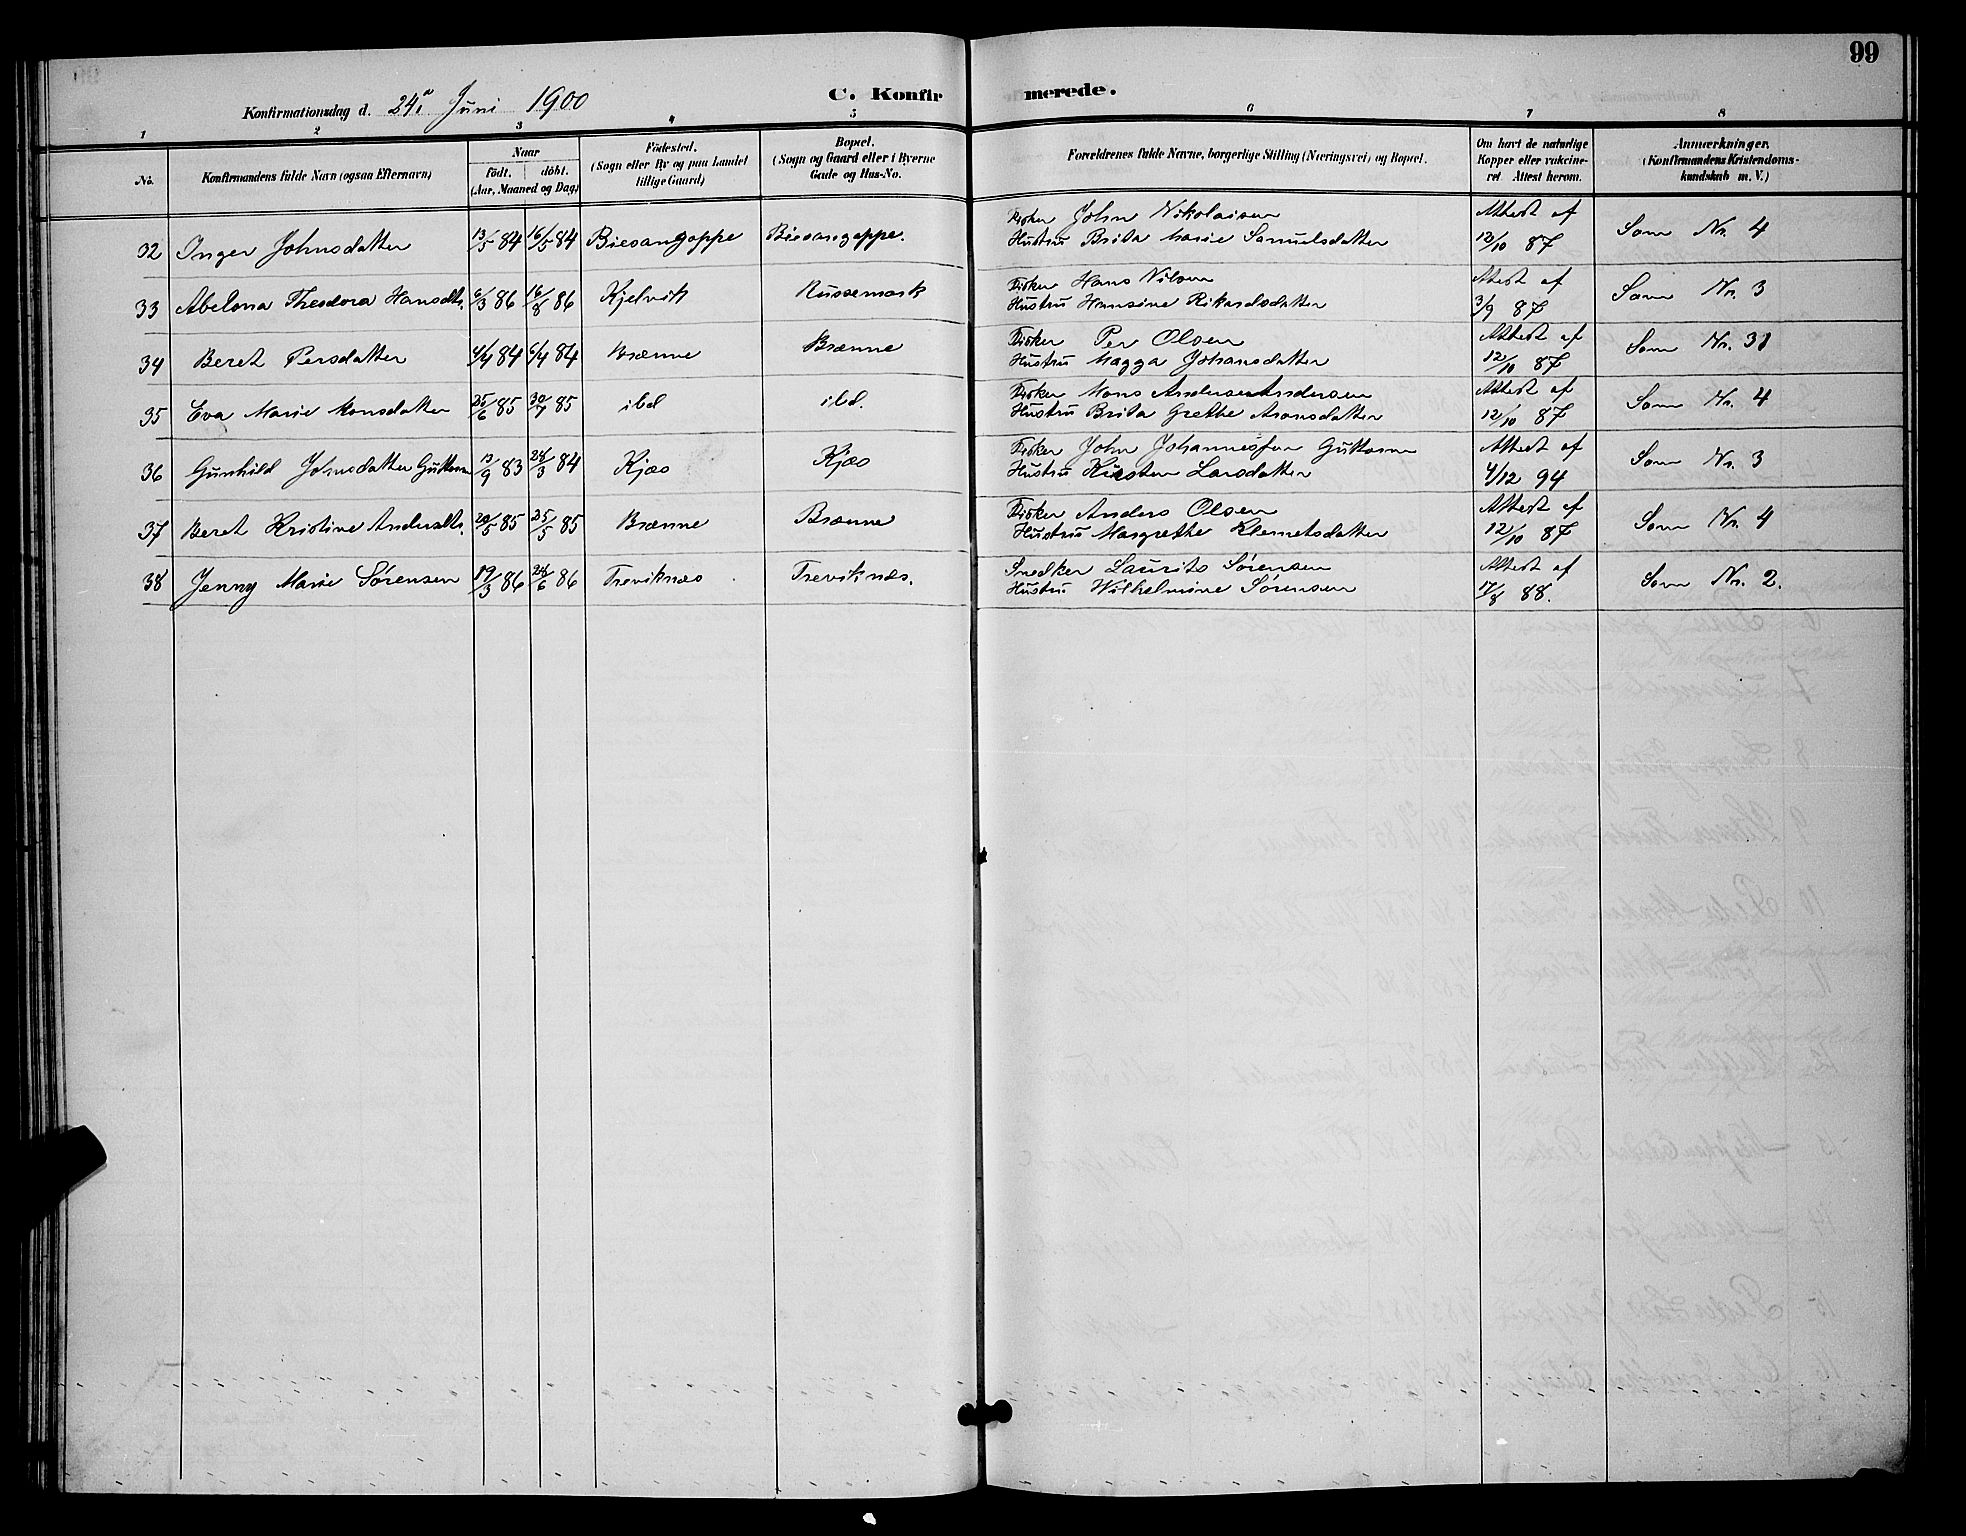 99
Konfirmationsdag d. 24de Juni 1900
C. Konfirmerede.
1 2 3 4 5 6 7 8
No. Konfirmandens fulde Navn (ogsaa Efternavn) Naar födt. döbt. (Aar, Maaned og Dag) Födested. (Sogn eller By og paa Landet tillige Gaard) Bopæl. (Sogn og Gaard eller i Byerne Gade og Hus-No. Forældrenes fulde Navne, borgerlige Stilling (Næringsvei) og Bopæl. Om havt de naturlige Kopper eller vakcineret Attest herom. Anmærkninger. (Konfirmandens Kristendomskundskab m. V.)
32 Inger Johnsdatter 13/5 84 16/5 84 Biesangoppe Biesangoppe. Fisker John Nikolaisen Attest af Som Nr. 4
Hustru Brita Marie Samulsdatter 12/10 87
33 Abelona Theodora Hansdtr. 6/3 86 16/8 86 Kjelvik Russemark Fisker Hans Nilsen Attest af Som Nr. 3
Hustru Hansine Rikardsdatter 3/9 87
34 Beret Persdatter 4/4 84 6/4 84 Brænne Brænne Fisker Per Olsen Attest af Som Nr. 31
Hustru Magga Johansdatter 12/10 87
35 Eva Marie Monsdatter 25/6 85 30/7 85 ibd ibd. Fisker Mons Andersen Andersen Attest af Som Nr. 4
Hustru Brita Grethe Aronsdatter 12/10 87
36 Gunhild Johnsdatter Guttorm 13/9 83 28/3 84 Kjæs Kjæs Fisker John Johannessen Guttorm Attest af Som Nr. 3
Hustru Kirsten Larsdatter 4/12 94
37 Beret Kristine Andersdtr. 20/5 85 25/5 85 Brænne Brænne Fisker Anders Olsen Attest af Som Nr. 4
Hustru Margrethe Klemetsdatter 12/10 87
38 Jenny Marie Sörensen 19/3 86 24/6 86 Treviknæs Treviknæs. Snedker Laurits Sörensen Attest af Som Nr. 2.
Hustru Wilhelmine Sörensen 17/8 88.